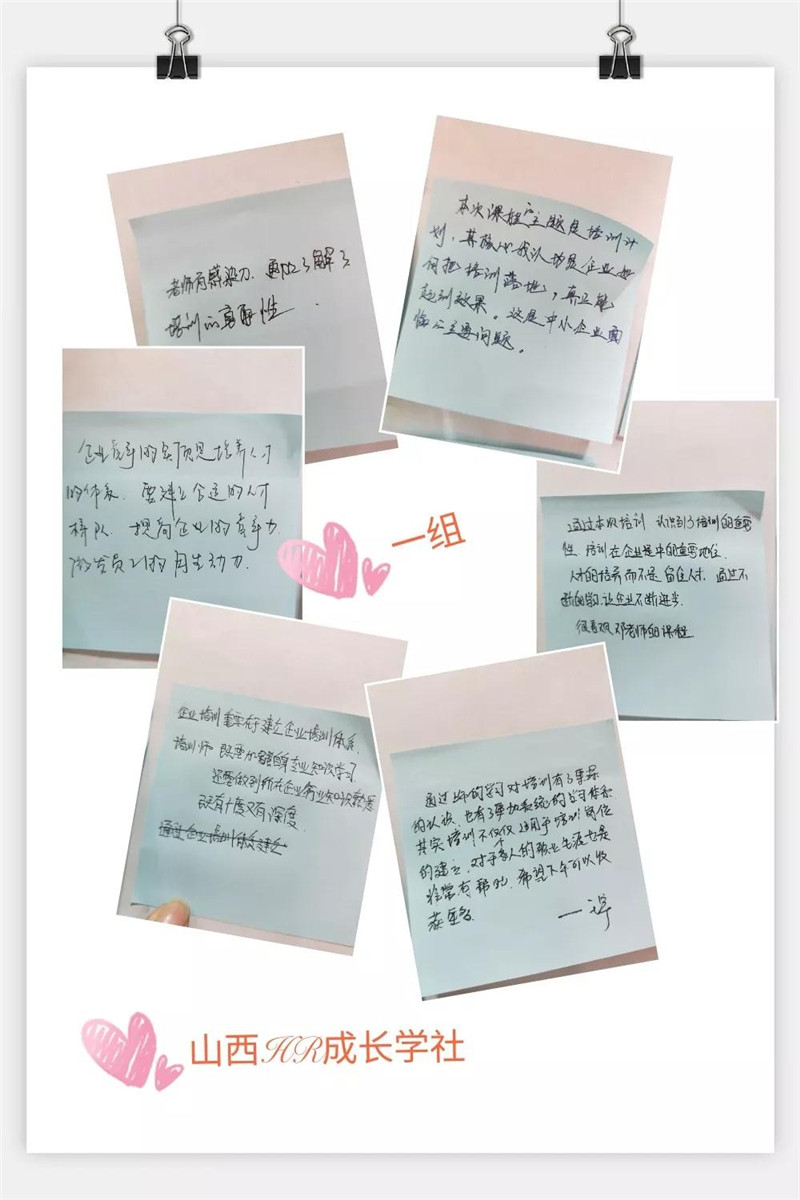 老师有感染力. 更加了解了
培训的实用性.
本次课程的主题是培训计
划，其核心我认为是企业如
何把培训落地，真正能
起到效果。这是中小企业面
临的主要问题。
企业竞争的实质是培养人才
的体系. 要建立合适的人才
梯队. 提高企业的竞争力
激发员工的内生动力.
一组
通过本次培训 认识到了培训的重要
性, 培训在企业是中的重要地位.
人才的培养而不是留住人才, 通过不
断的 让企业不断进步.
很喜欢邓老师的课程
企业培训重要在于建立企业培训体系,
培训师 既要加 自身专业知识学习
还要做到所在企业行业知识熟悉
既有广度又有深度.
通过企业培训体系建立
通过上午的学习对培训有了更深
的认识 也有了更加系统的学习体系
其实培训不仅仅适用于培训岗位
的建立, 对于个人的职业生涯也是
非常有帮助. 希望下午可以收
获更多.
一
山西HR成长学社